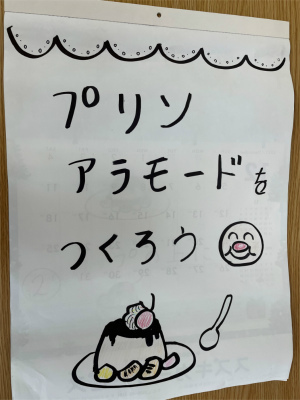 プリン
アラモードを
つくろう